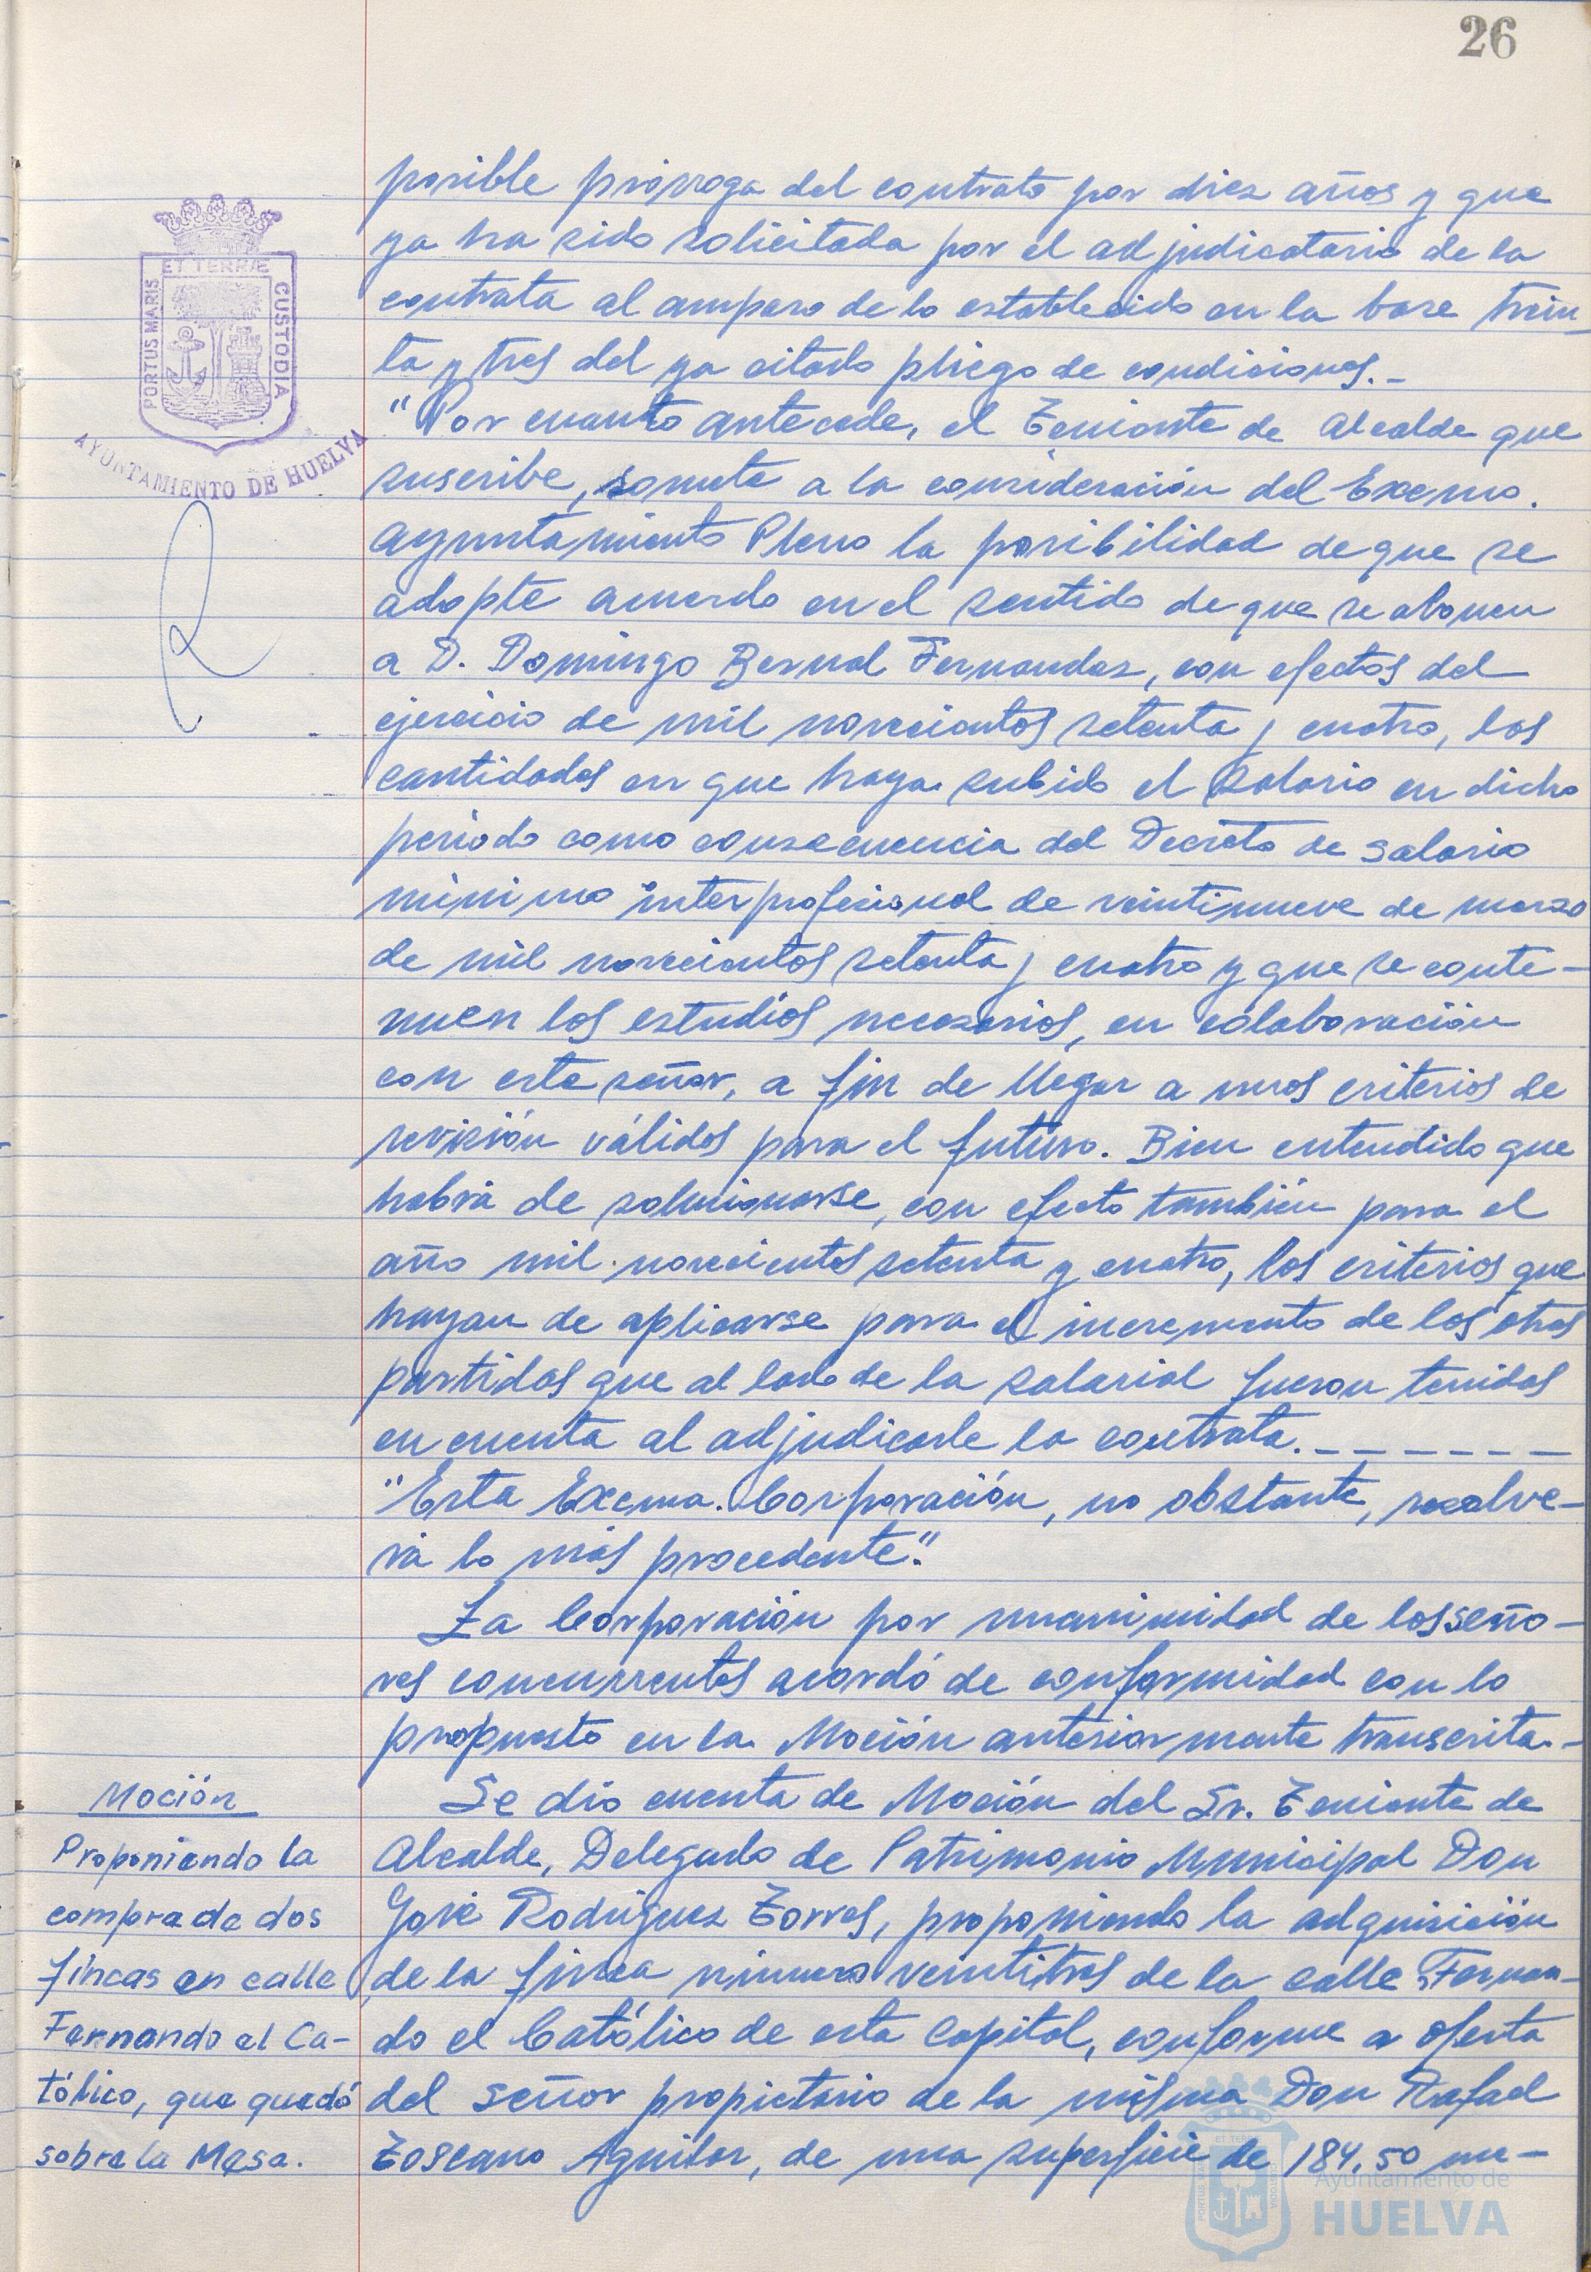 26
posible prórroga del contrato por diez años y que
ya ha sido solicitada por el adjudicatario de la
contrata al amparo de lo establecido en la base trein-
ta y tres del ya citado pliego de condiciones.-
"Por cuanto antecede, el Teniente de Alcalde que
suscribe, somete a la consideración del Excmo.
Ayuntamiento Pleno la posibilidad de que se
adopte acuerdo en el sentido de que se abonen
a D. Domingo Bernal Fernandez, con efectos del
ejercicio de mil novecientos setenta y cuatro, las
cantidades en que haya subido el salario en dicho
periodo como consecuencia del Decreto de salario
mínimo interprofesional de veintinueve de marzo
de mil novecientos setenta y cuatro y que se conti-
nuen los estudios necesarios, en colaboración
con este señor, a fin de llegar a unos criterios de
revisión válidos para el futuro. Bien entendido que
habrá de solucionarse, con efecto también para el
año mil novecientos setenta y cuatro, los criterios que
hayan de aplicarse para el incremento de las otras
partidas que al lado de la salarial fueron tenidas
en cuenta al adjudicarle la contrata. - - - - - -
"Esta Excma. Corporación, no obstante, resolve-
rá lo más procedente".
La Corporación por unanimidad de los seño-
res concurrentes acordó de conformidad con lo
propuesto en la Moción anteriormente transcrita.-
Se dio cuenta de Moción del Sr. Teniente de
Alcalde, Delegado de Patrimonio Municipal Don
José Rodríguez Torres, proponiendo la adquisición
de la finca número veintitres de la calle Fernan-
do el Católico de esta Capital, conforme a oferta
del señor propietario de la misma Don Rafael
Toscano Aguilar, de una superficie de 184,50 me-
Moción
Proponiendo la
compra de dos
fincas en calle
Fernando el Ca-
tólico, que quedó
sobre la Mesa.
PORTUS MARIS ET TERRÆ CUSTODIA
AYUNTAMIENTO DE HUELVA
Ayuntamiento de
HUELVA